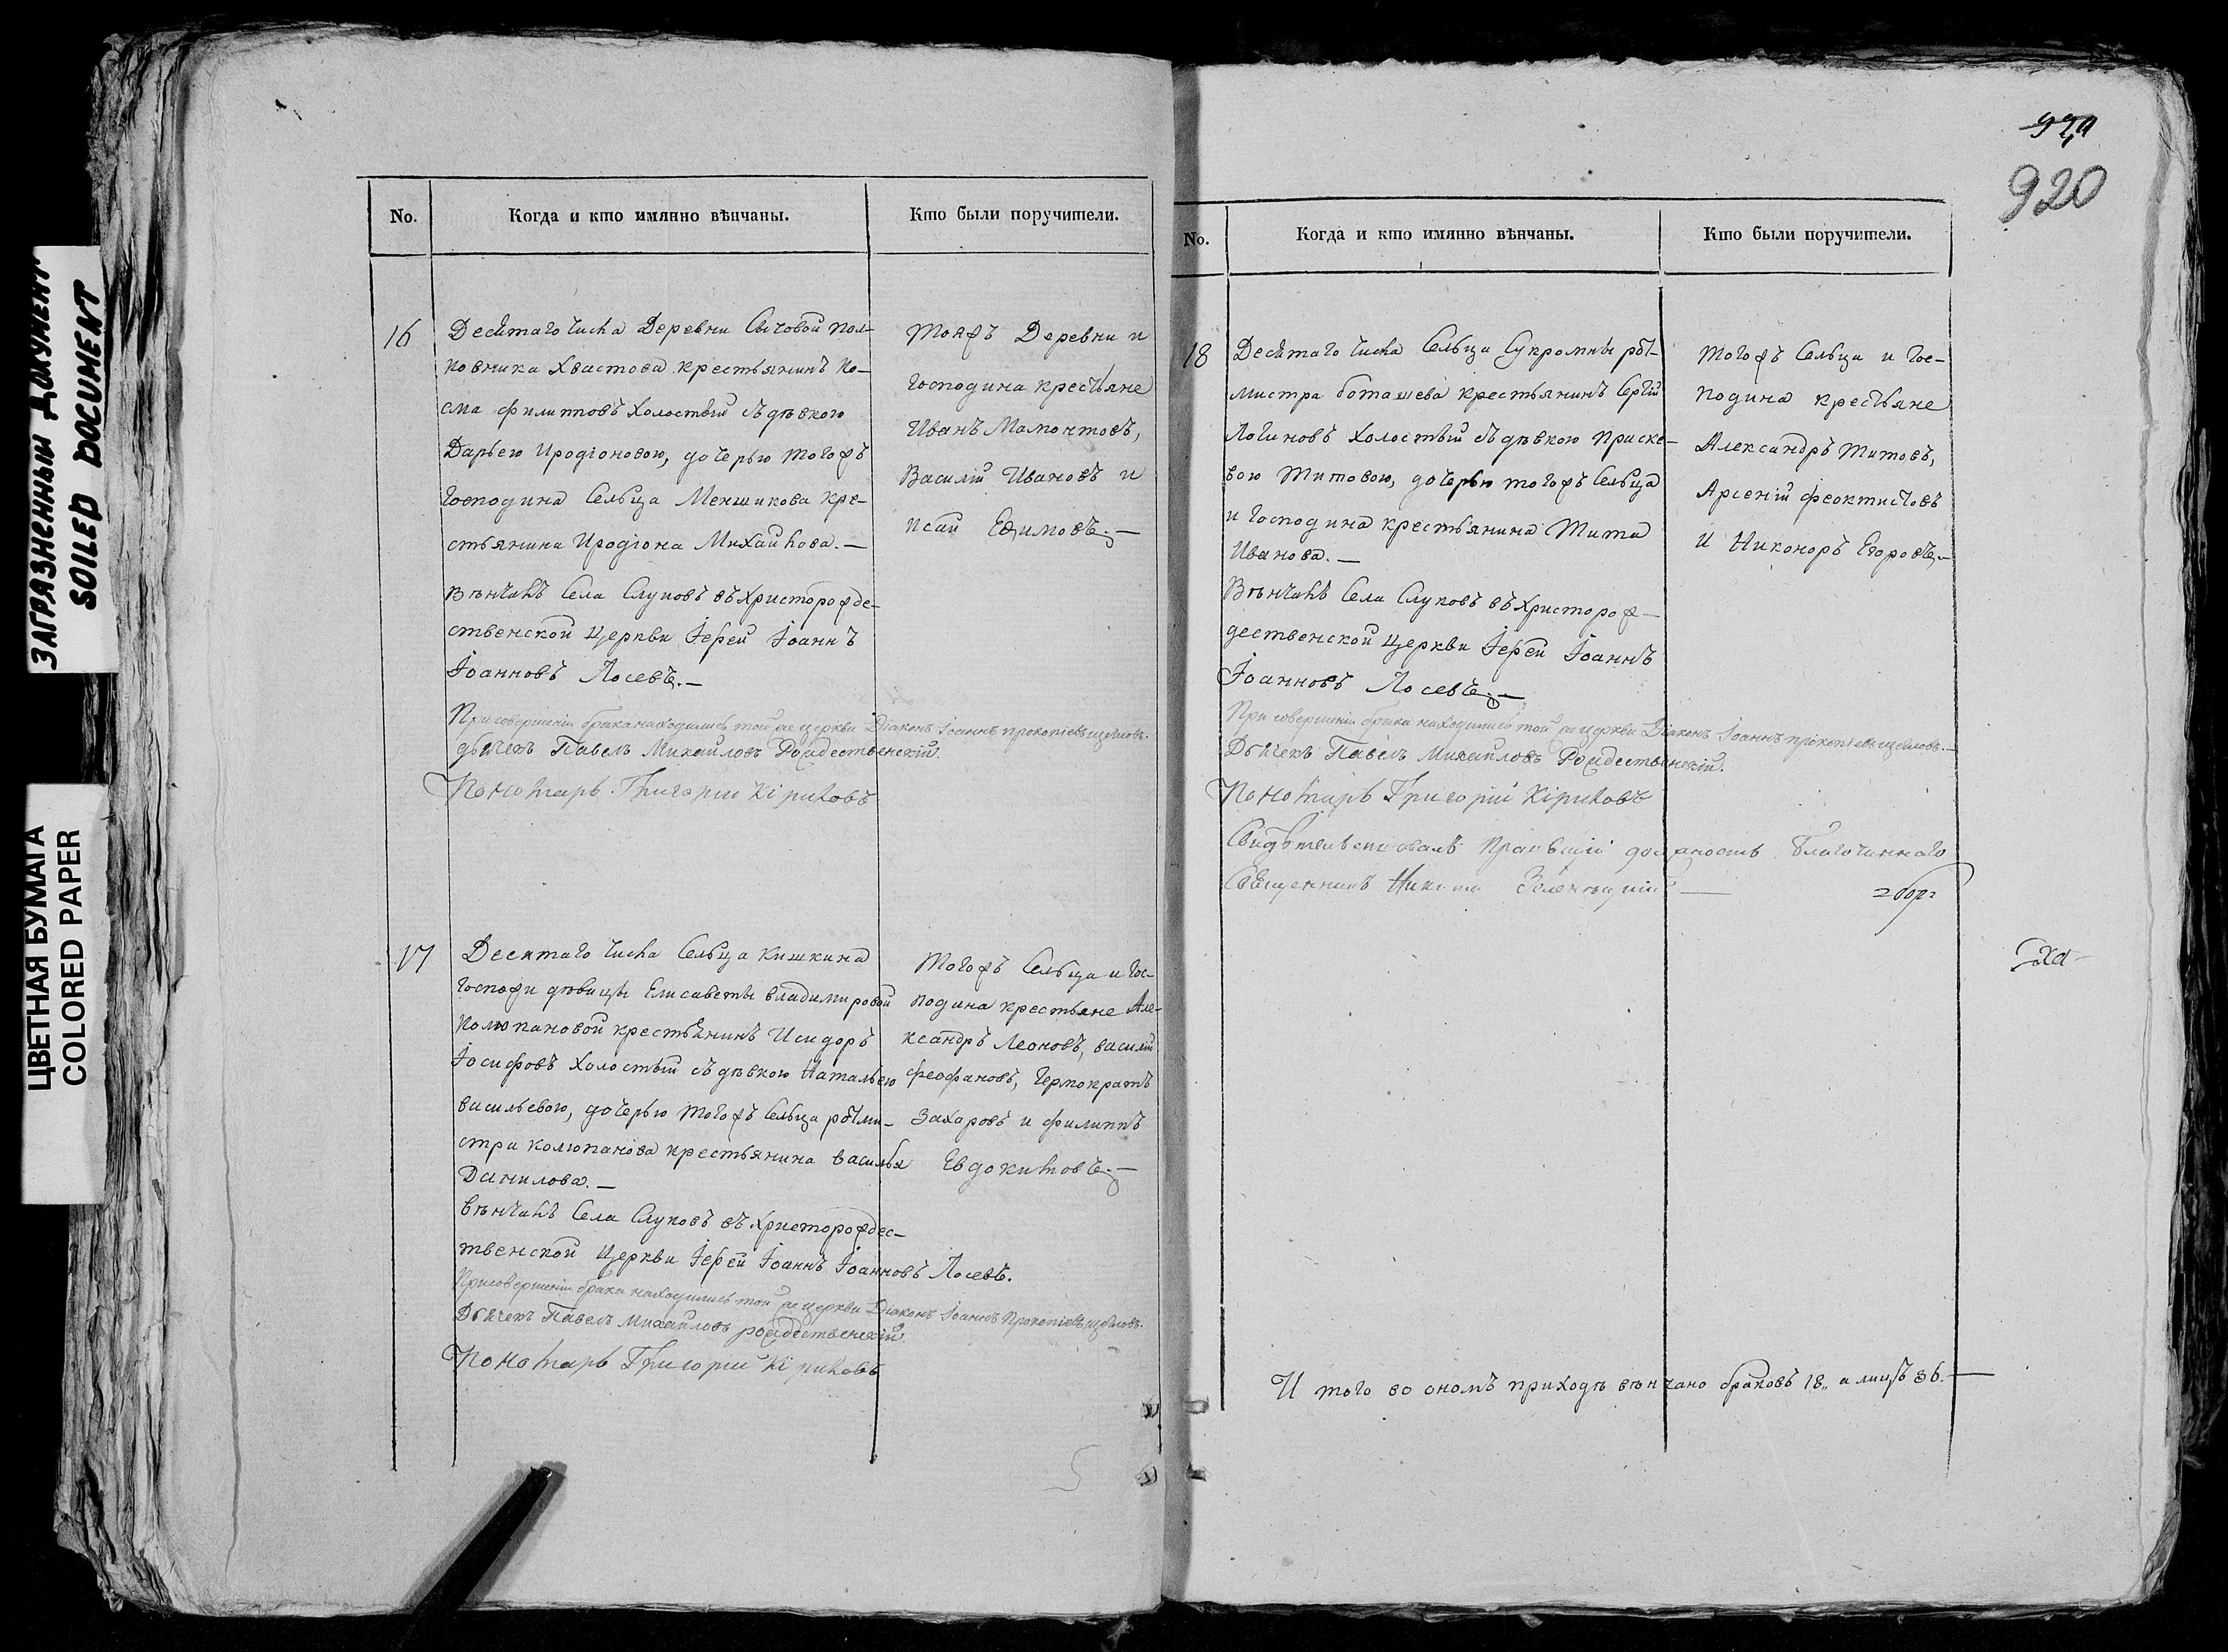 ЗАГРЯЗНЕННЫЙ ДОКУМЕНТ
SOILED DOCUMENT
ЦВЕТНАЯ БУМАГА
COLORED PAPER
No.
Когда и кто имянно вѣнчаны.
Кто были поручители.
16
Десятаго числа Деревни Сычовой пол-
ковника Хвастова крестьянинъ Ко-
сма Филиповъ холостый съ дѣвкою
Дарьею Иродіоновою, дочерью тогожъ
Господина Сельца Меншикова кре-
стьянина Иродіона Михайлова.—
Вѣнчалъ Села Слуковъ въ Христорожде-
ственской Церкви Іерей Іоаннъ
Іоанновъ Лосевъ.—
При совершеніи брака находились той же церкви Діаконъ Іоаннъ Прокопіевъ
дьячекъ Павелъ Михайловъ Рождественскій.
Пономарь Григорій Кириловъ
Тояжъ Деревни и
Господина крестьяне
Иванъ Мамонтовъ,
Василій Ивановъ и
Исай Ефимовъ.—
17
Десятаго числа Сельца Кишкина
Госпожи дѣвицы Елисаветы Владимировой
Колюпановой крестьянинъ Исидоръ
Іосифовъ холостый съ дѣвкою Натальею
Васильевою, дочерью тогожъ Сельца ротми-
стра Колюпанова крестьянина Василья
Данилова.—
Вѣнчалъ Села Слуковъ въ Христорождес-
твенской Церкви Іерей Іоаннъ Іоанновъ Лосевъ.
При совершеніи брака находились той же церкви Діаконъ Іоаннъ Прокопіевъ
Дьячекъ Павелъ Михайловъ Рождественскій.
Пономарь Григорій Кириловъ
Тогожъ Сельца и Гос-
подина крестьяне Але-
ксандръ Леоновъ, Василій
Феофановъ, Гермократъ
Захаровъ и Филиппъ
Евдокимовъ.—
920
No.
Когда и кто имянно вѣнчаны.
Кто были поручители.
18
Десятаго числа Сельца Сукромны рот-
мистра Боташева крестьянинъ Сергій
Логиновъ холостый съ дѣвкою Праске-
вою Титовою, дочерью тогожъ Сельца
и Господина крестьянина Тита
Иванова.—
Вѣнчалъ Села Слуковъ въ Христорож-
дественской Церкви Іерей Іоаннъ
Іоанновъ Лосевъ.—
При совершеніи брака находились той же церкви Діаконъ Іоаннъ Прокопіевъ
Дьячекъ Павелъ Михайловъ Рождественскій.
Пономарь Григорій Кириловъ
Свидѣтельствовалъ Правящій должность Благочиннаго
Священникъ Никита
Тогожъ Сельца и Гос-
подина крестьяне
Александръ Титовъ,
Арсеній Феоктистовъ
и Никоноръ Егоровъ.—
И того во ономъ приходѣ вѣнчано браковъ 18,, а лицъ 36.—